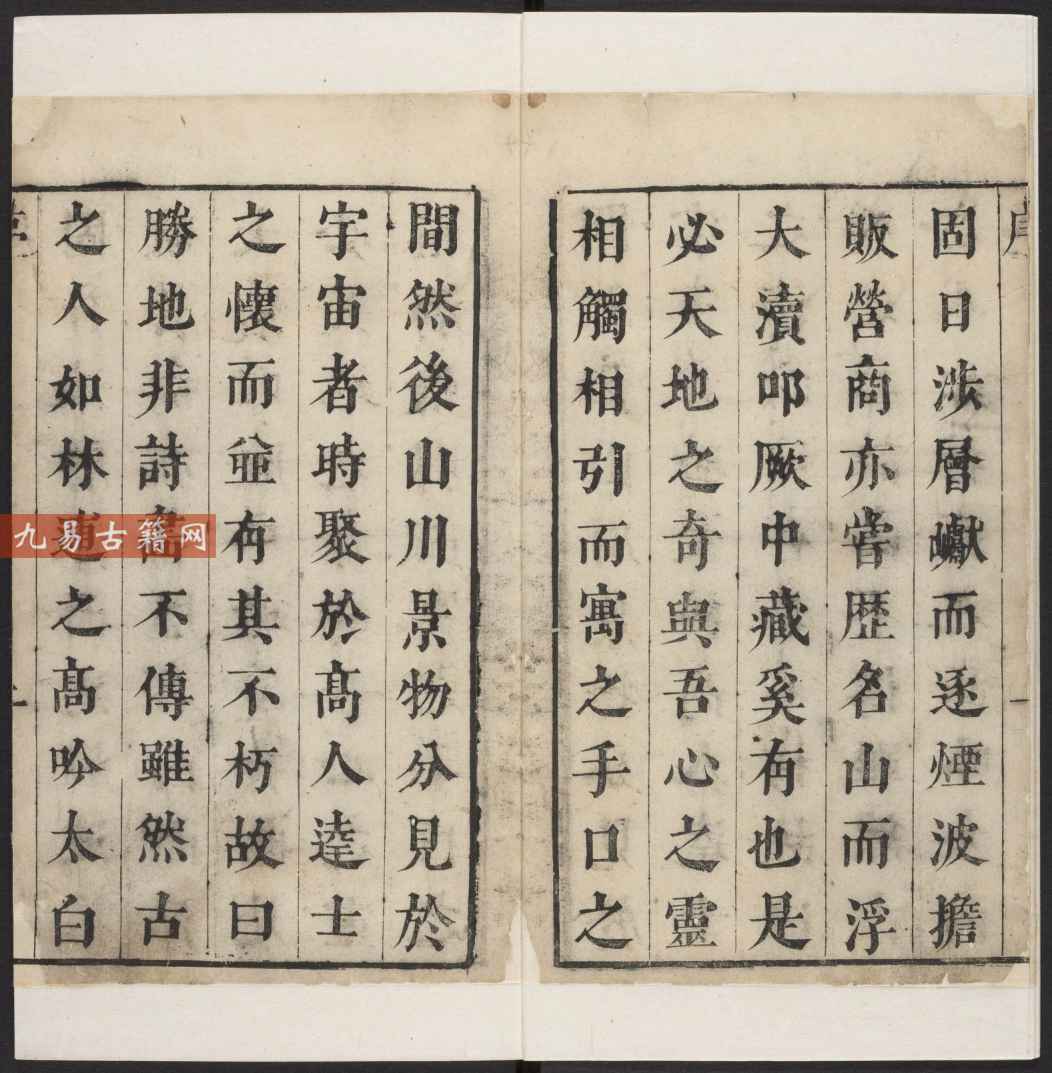 固日涉層巘而逐煙波擔
販營商亦甞歴名山而浮
大瀆叩厥中藏奚有也是
必天地之奇與吾心之靈
相觸相引而寓之手口之
間然後山川景物分見於
宇宙者時聚於髙人達士
之懷而並有其不朽故曰
勝地非詩畵不傳雖然古
之人如林逋之髙吟太白
九易古籍网